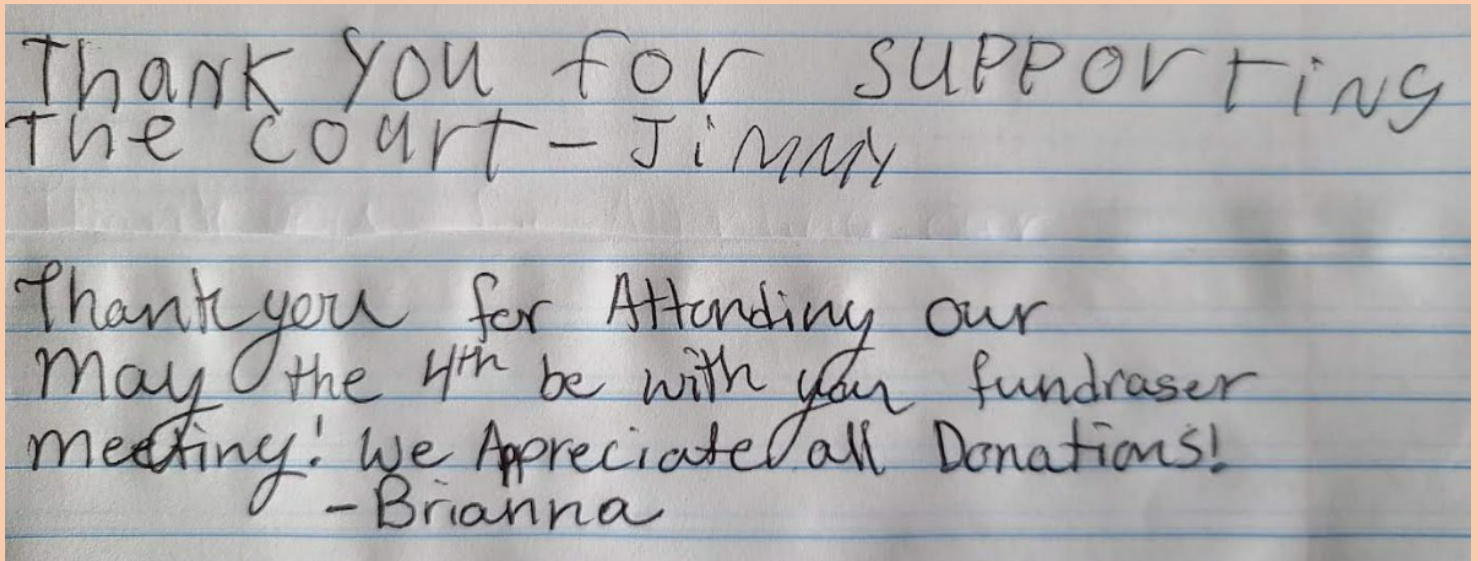 Thank you for supporting
The court - Jimmy
Thank you for Attending our
May the 4th be with you fundraser
meeting! We Appreciate all Donations!
- Brianna